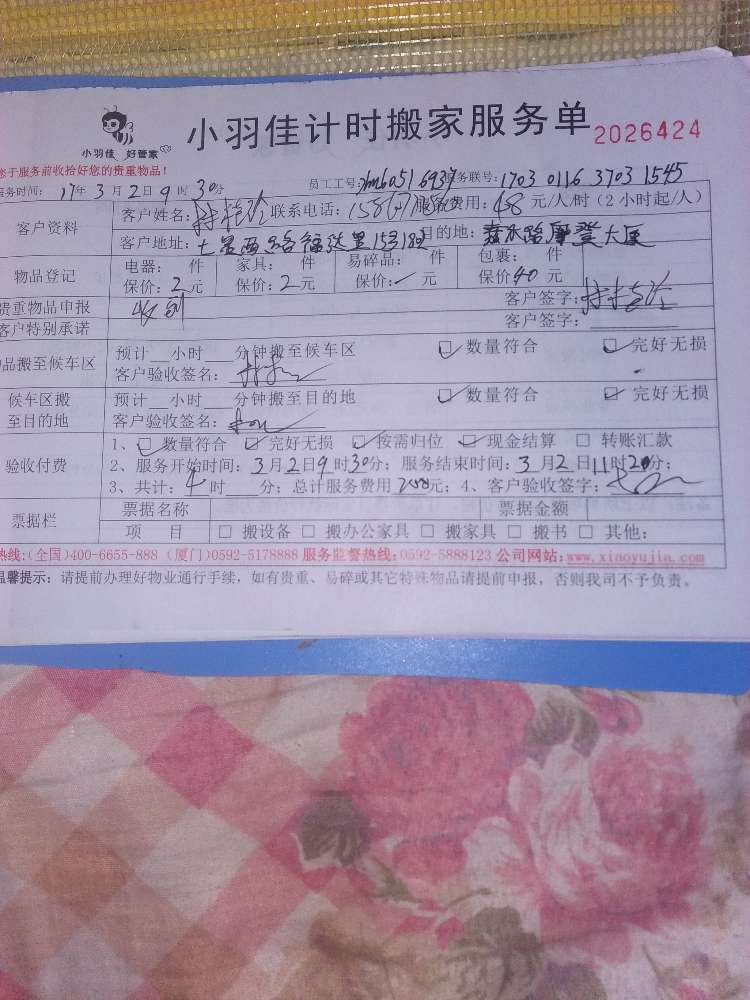 小羽佳 好管家
小羽佳计时搬家服务单
2026424
您于服务前收拾好您的贵重物品!
服务时间: 17年 3月 2日 9时 30分 员工工号: 服务联号: 1703 0116 3703 1545
客户资料 客户姓名: 联系电话: 服务费用: 48 元/人/时 (2小时起/人)
客户地址: 目的地: 摩登大厦
物品登记 电器: 件 家具: 件 易碎品: 件 包裹: 件
保价: 2元 保价: 2元 保价: 元 保价40元
贵重物品申报 收到 客户签字:
客户特别承诺 客户签字:
品搬至候车区 预计__小时__分钟搬至候车区 数量符合 完好无损
客户验收签名:
候车区搬至目的地 预计__小时__分钟搬至目的地 数量符合 完好无损
客户验收签名:
验收付费 1、数量符合 完好无损 按需归位 现金结算 转账汇款
2、服务开始时间: 3月2日9时30分; 服务结束时间: 3月2日11时20分;
3、共计: 4时__分; 总计服务费用 元; 4、客户验收签字:
票据栏 票据名称 票据金额
项 目 □ 搬设备 □ 搬办公家具 □ 搬家具 □ 搬书 □ 其他:
热线:(全国)400-6655-888 (厦门)0592-5178888 服务监督热线:0592-5888123 公司网站:www.xiaoyujia.com
温馨提示: 请提前办理好物业通行手续, 如有贵重、易碎或其它特殊物品请提前申报, 否则我司不予负责。